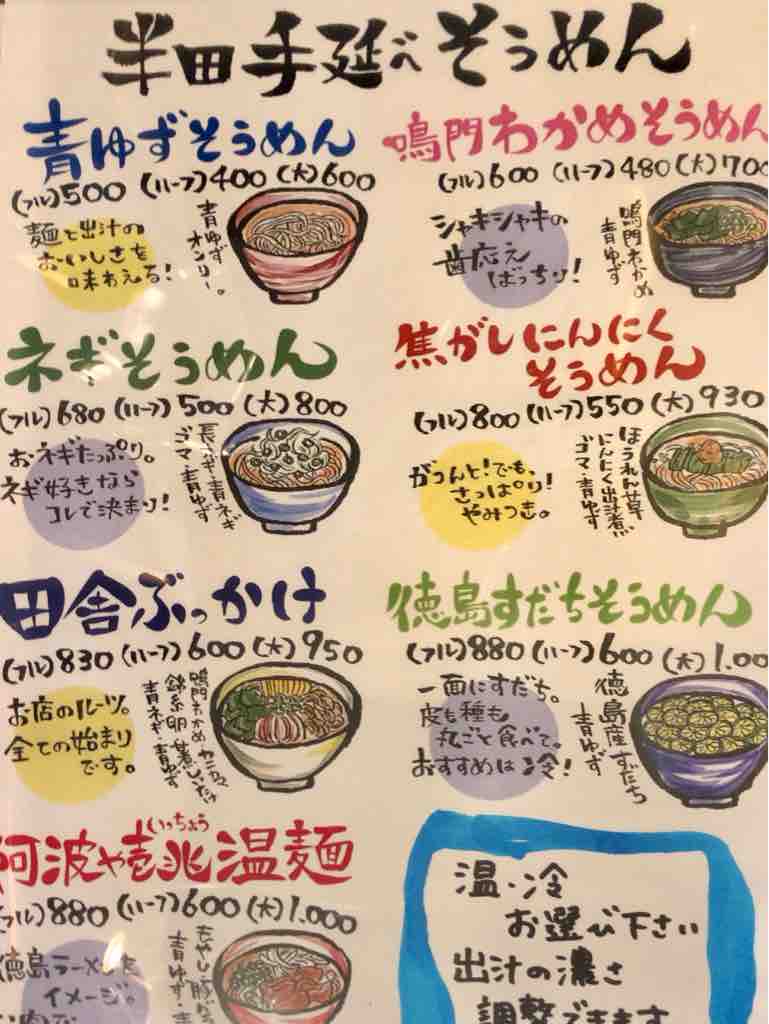 半田手延べそうめん
青ゆずそうめん
(フル)500 (ハーフ)400 (大)600
麺と出汁の
おいしさを
味わえる!
青ゆず
オンリー。
鳴門わかめそうめん
(フル)600 (ハーフ)480 (大)700
シャキシャキの
歯応え
ばっちり!
鳴門わかめ
青ゆず
ネギそうめん
(フル)680 (ハーフ)500 (大)800
おネギたっぷり。
ネギ好きなら
コレで決まり!
長ネギ・青ネギ
ゴマ・青ゆず
焦がしにんにく
そうめん
(フル)800 (ハーフ)550 (大)930
がつんと!でも、
さっぱり!
やみつき。
ほうれん草
にんにく出汁煮
ゴマ・青ゆず
田舎ぶっかけ
(フル)830 (ハーフ)600 (大)950
お店のルーツ。
全ての始まり
です。
鳴門わかめ カニカマ
錦糸 煮しいたけ
青ネギ・青ゆず
徳島すだちそうめん
(フル)880 (ハーフ)600 (大)1.00
一面にすだち。
皮も種も
丸ごと食べて。
おすすめは冷!
徳島産すだち
青ゆず
いっちょう
阿波や壱兆温麺
(フル)880 (ハーフ)600 (大)1.000
徳島ラーメンを
イメージ。
もやし 豚
青ゆず・
温・冷
お選び下さい
出汁の濃さ
調整できます